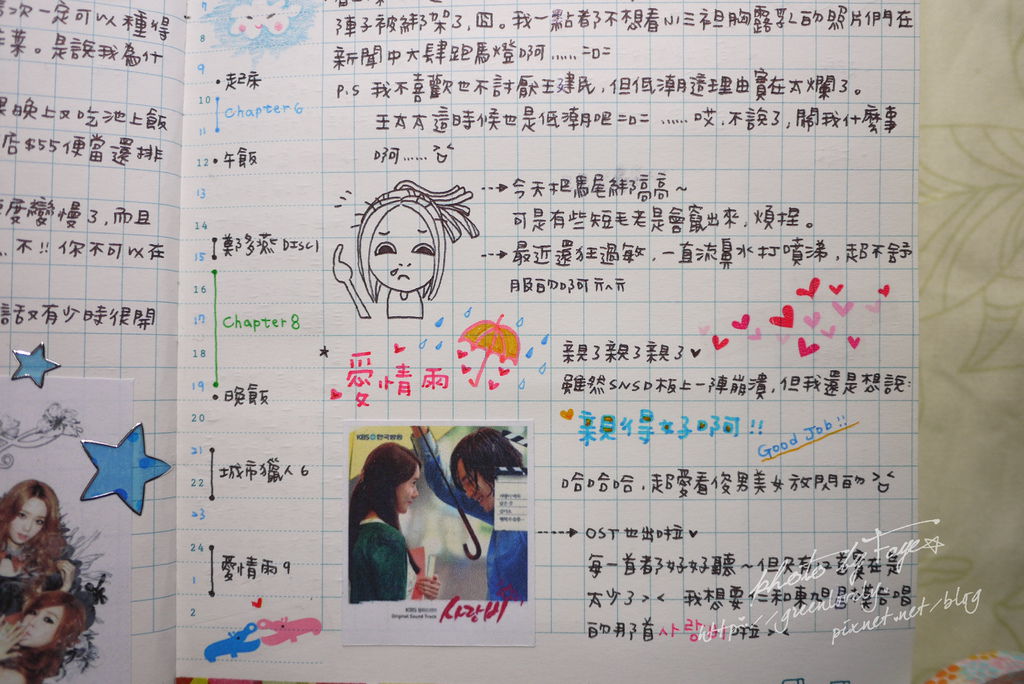 次一定可以種得
菜。是說我為什
晚上又吃池上飯
店$55便當還排
度變慢了,而且
不!!你不可以在
話又有少時很開
7
8
9
10
11
12
13
14
15
16
17
18
19
20
21
22
23
24
1
2
起床
Chapter 6
午飯
鄭多燕 DISC1
Chapter 8
晚飯
城市獵人 6
愛情雨 9
陣子被綁架了,囧。我一點都不想看
新聞中大肆跑馬燈啊......=口=
P.S 我不喜歡也不討厭王建民,但低潮這理由實在太爛了。
王太太這時候也是低潮吧=口= ......哎,不說了,關我什麼事
啊......
今天把馬尾綁高高~
可是有些短毛老是會竄出來,煩捏。
最近還狂過敏,一直流鼻水打噴涕,超不舒
服的啊
愛情雨
親了親了親了♥
雖然SNSD板上一陣崩潰,但我還是想說:
親得好啊!!
Good Job!!
哈哈哈,超愛看俊男美女放閃的
KBS 한국방송
KBS
Original Sound Track
사랑비
OST也出啦♥
每一首都好好聽~但
太少了>< 我想要
的那首사랑비啦><
photo by Faye☆
pixnet.net/blog